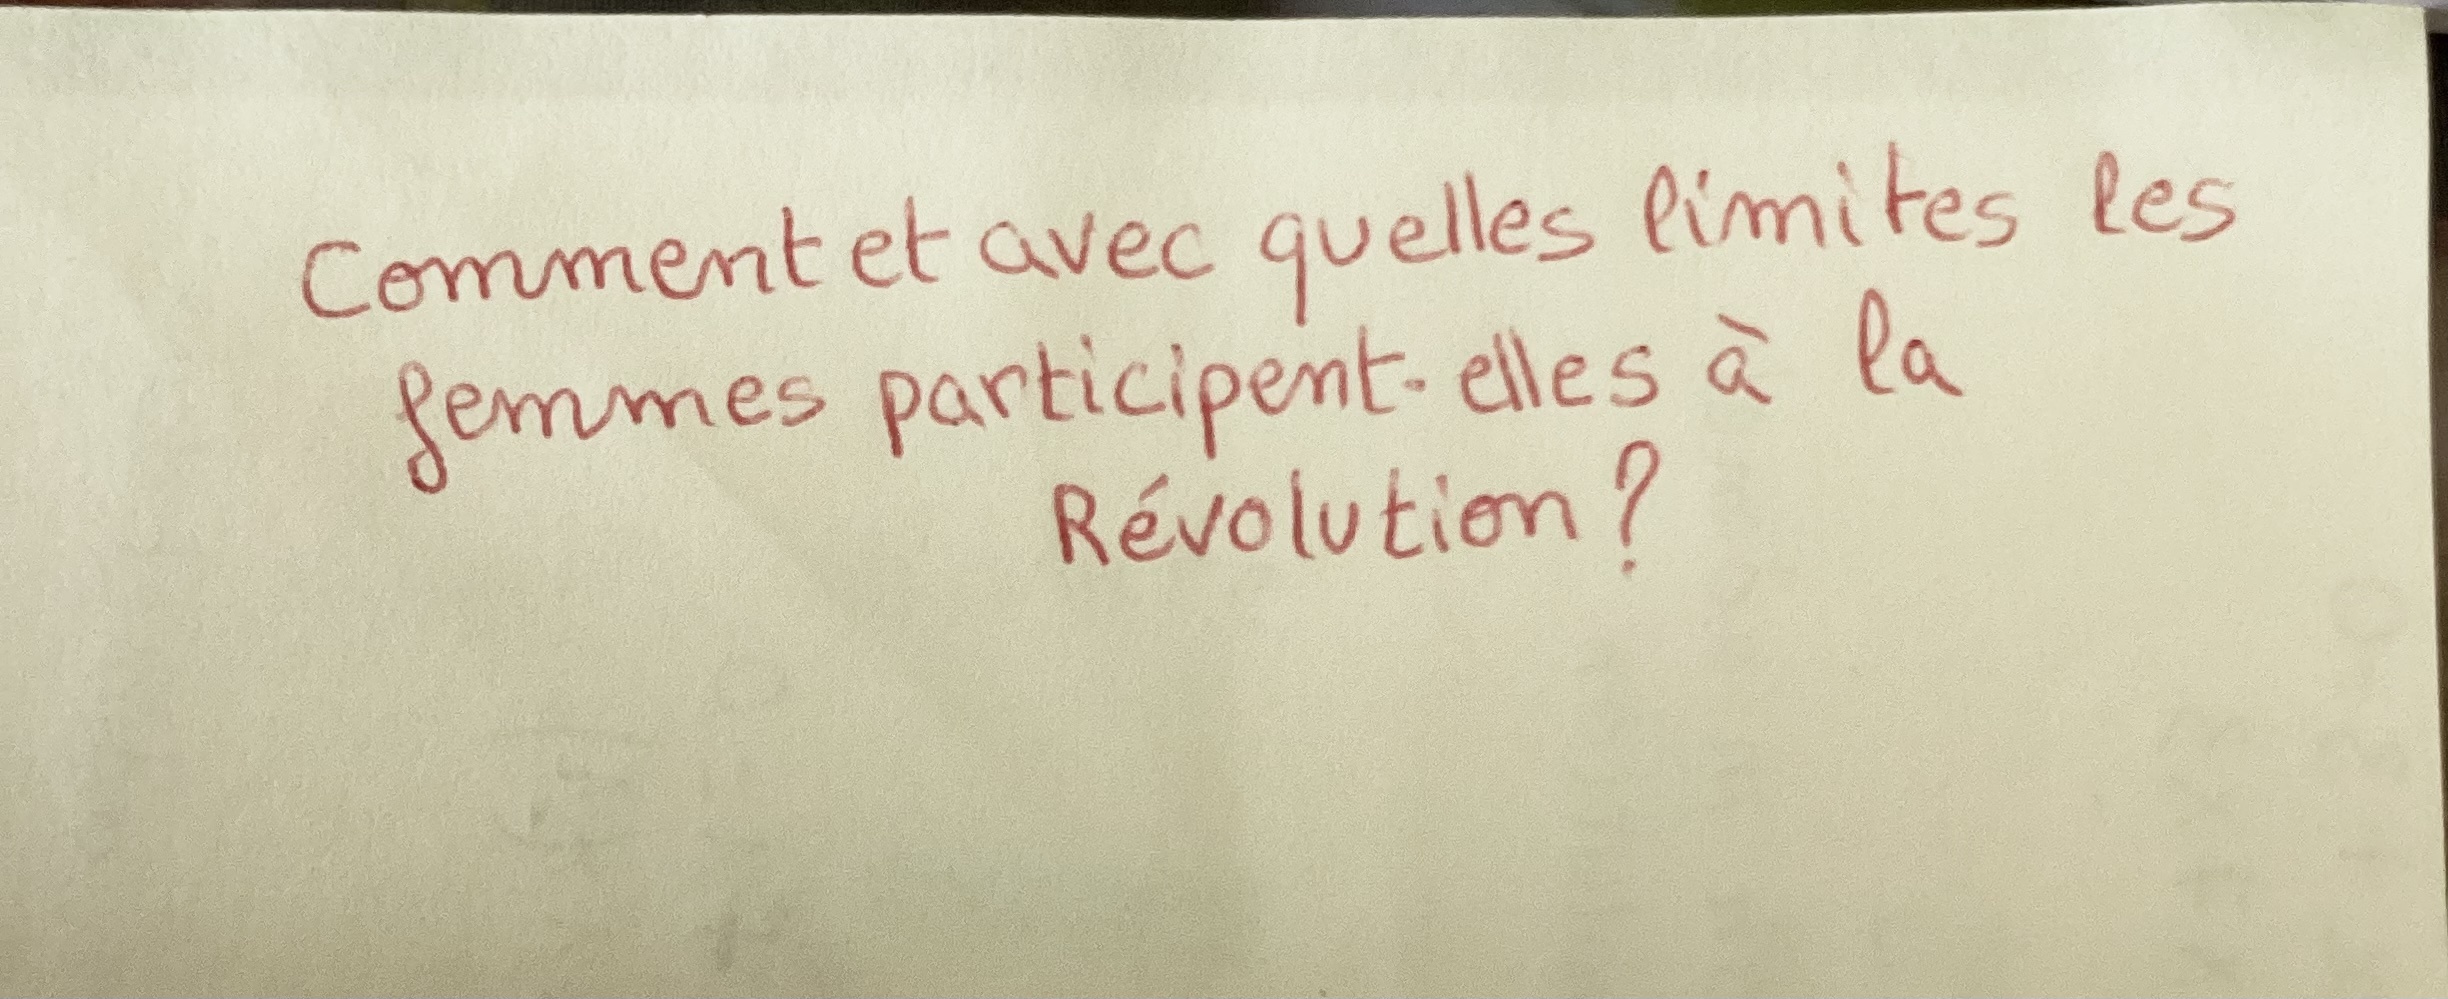 Comment et avec quelles limites les
femmes participent-elles à la
Révolution ?